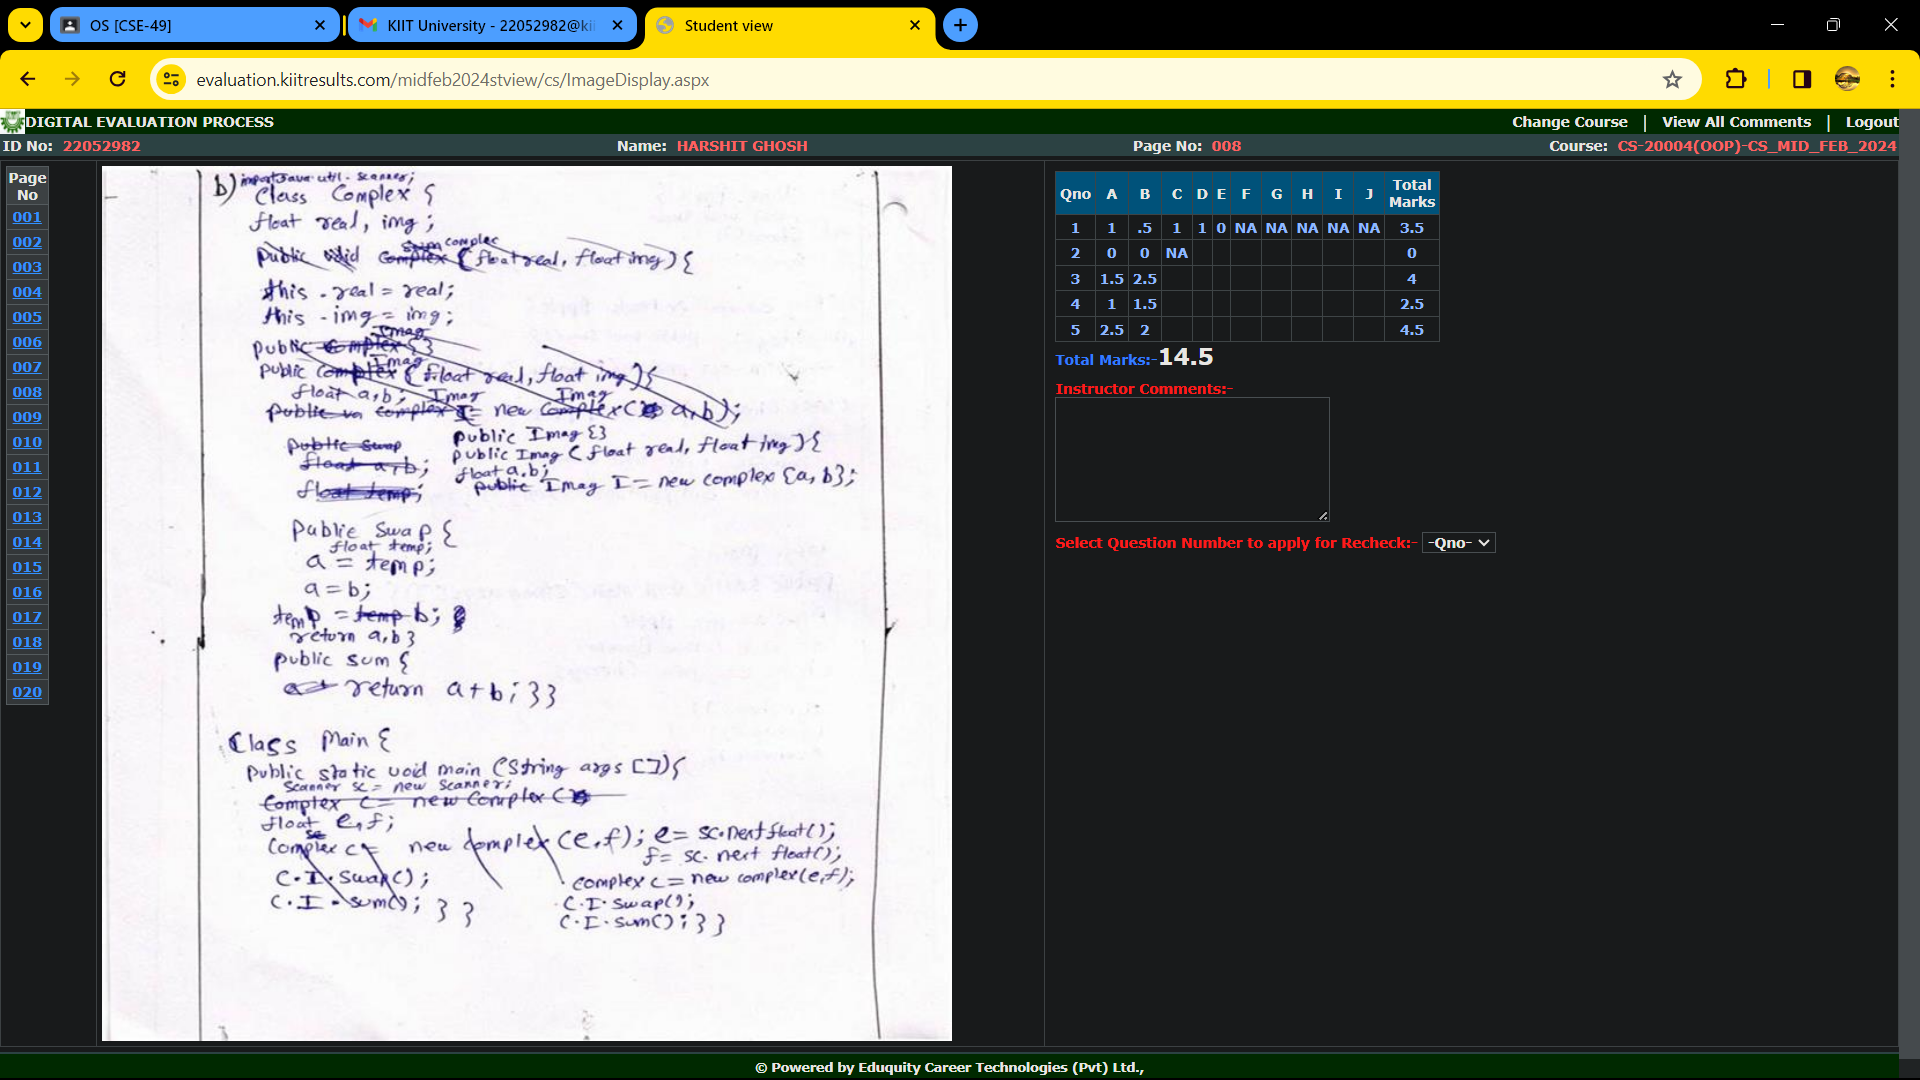 OS [CSE-49]
KIIT University - 22052982@kii
Student view
evaluation.kiitresults.com/midfeb2024stview/cs/ImageDisplay.aspx
DIGITAL EVALUATION PROCESS
Change Course | View All Comments | Logout
ID No: 22052982 Name: HARSHIT GHOSH Page No: 008 Course: CS-20004(OOP)-CS_MID_FEB_2024
Page No
001
002
003
004
005
006
007
008
009
010
011
012
013
014
015
016
017
018
019
020
b) import java.util.scanner;
Class Complex {
float real, img ;
Public void complex (float real, float img) {
this . real = real;
this . img = img;
Imag
public complex {}
Imag
public complex (float real, float img) {
float a,b; Imag Imag
public complex I = new complex( a,b);
public swap
float a,b;
float temp;
public Imag {}
public Imag ( float real, float img ) {
float a,b;
public Imag I = new complex {a, b};
public swap {
float temp;
a = temp;
a = b;
temp = temp b;
return a,b }
public sum {
return a + b ; } }
Class Main {
public static void main (String args []) {
Scanner sc = new scanner;
Complex c = new complex (
float e,f;
complex c = new complex (e,f);
C.I.swap();
C.I.sum(); } }
e = sc.nextfloat();
f = sc. next float();
complex c = new complex(e,f);
C.I.swap();
C.I.sum(); } }
Qno A B C D E F G H I J Total Marks
1 1 .5 1 1 0 NA NA NA NA NA 3.5
2 0 0 NA 0
3 1.5 2.5 4
4 1 1.5 2.5
5 2.5 2 4.5
Total Marks:-14.5
Instructor Comments:-
Select Question Number to apply for Recheck:- -Qno-
© Powered by Eduquity Career Technologies (Pvt) Ltd.,